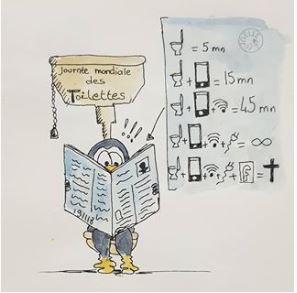 Journée mondiale
des
Toilettes
= 5 mn
+ = 15 mn
+ + = 45 mn
+ + + = ∞
+ + + + f =
19/11/18